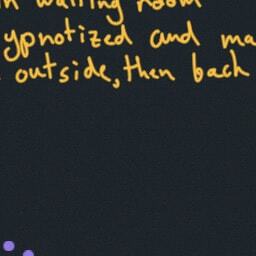 in waiting room
ypnotized and ma
outside, then back